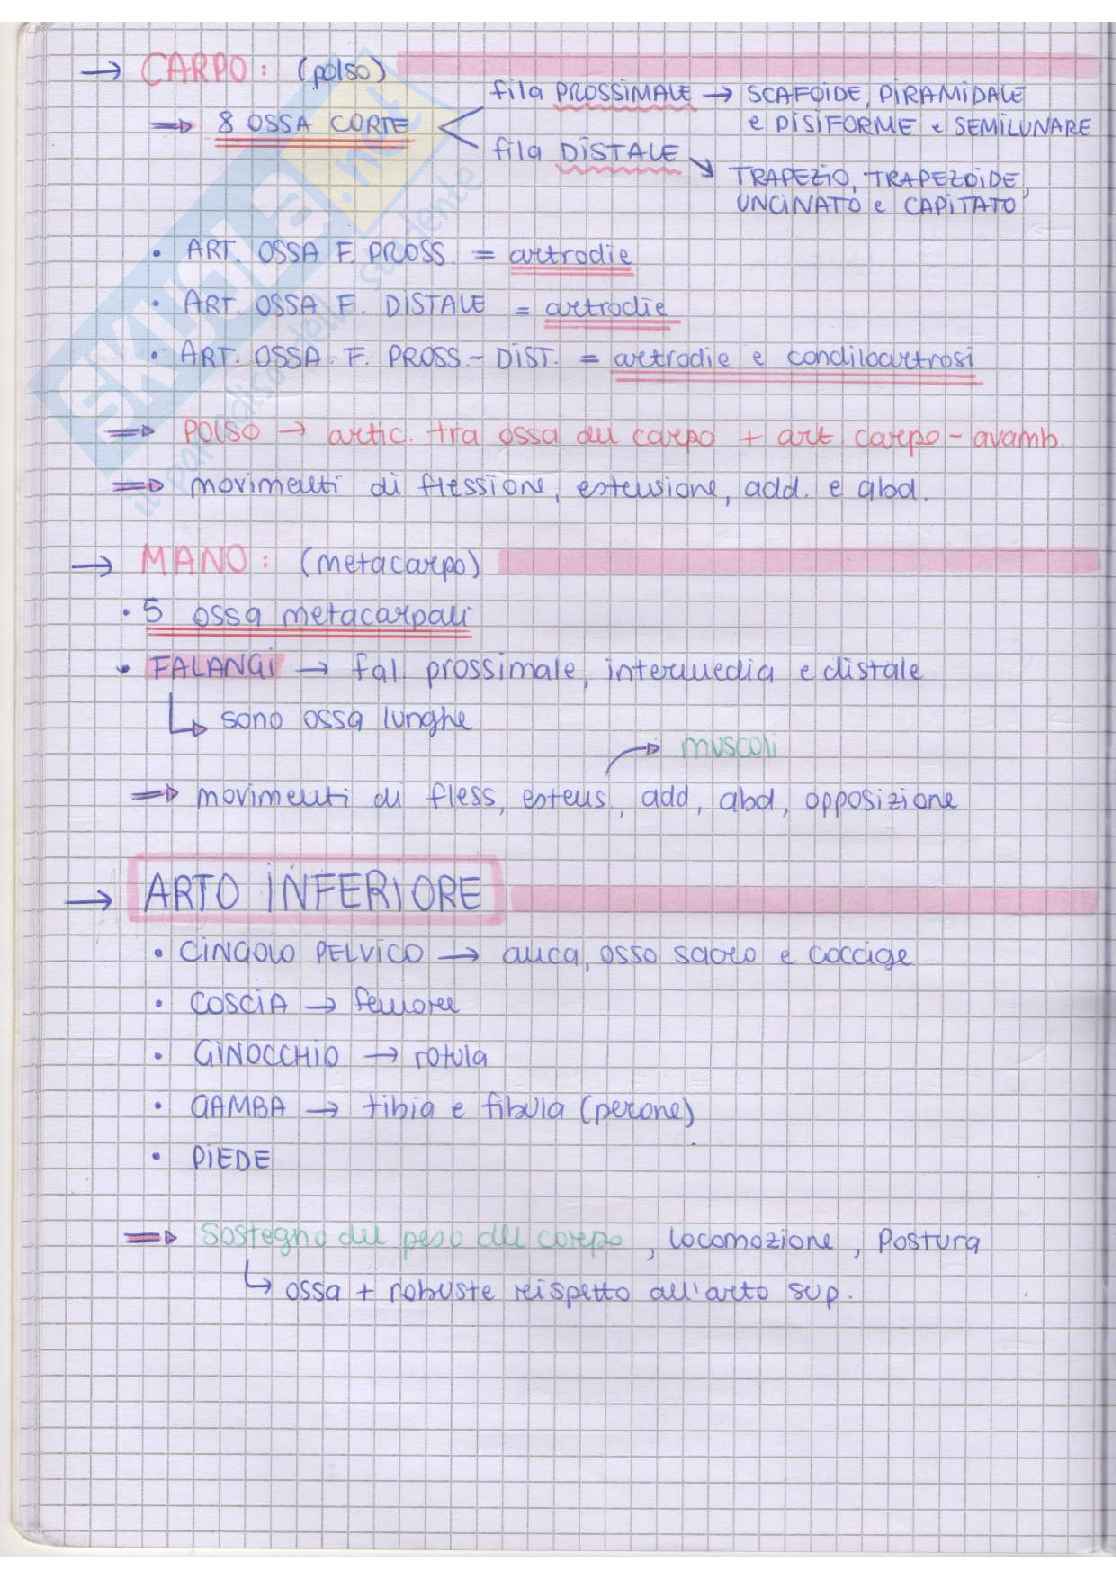 → CARPO: (polso)
fila PROSSIMALE → SCAFOIDE, PIRAMIDALE
⇒ 8 OSSA CORTE
e PISIFORME e SEMILUNARE
fila DISTALE
TRAPEZIO, TRAPEZOIDE,
UNCINATO e CAPITATO
• ART. OSSA F. PROSS. = artrodie
• ART. OSSA F. DISTALE = artrodie
• ART. OSSA. F. PROSS-DIST. = artrodie e condiloartrosi
⇒ POLSO → artic. tra ossa del carpo + art. carpo-avamb.
⇒ movimenti di flessione, estensione, add. e abd.
→ MANO: (metacarpo)
• 5 ossa metacarpali
• FALANGI → fal. prossimale, intermedia e distale
↳ sono ossa lunghe
→ muscoli
⇒ movimenti di fless, estens, add, abd, opposizione
→ ARTO INFERIORE
• CINGOLO PELVICO → anca, osso sacro e coccige
• COSCIA → femore
• GINOCCHIO → rotula
• GAMBA → tibia e fibula (perone)
• PIEDE
⇒ Sostegno del peso del corpo, locomozione, postura
↳ ossa + robuste rispetto all'arto sup.
skuola.net